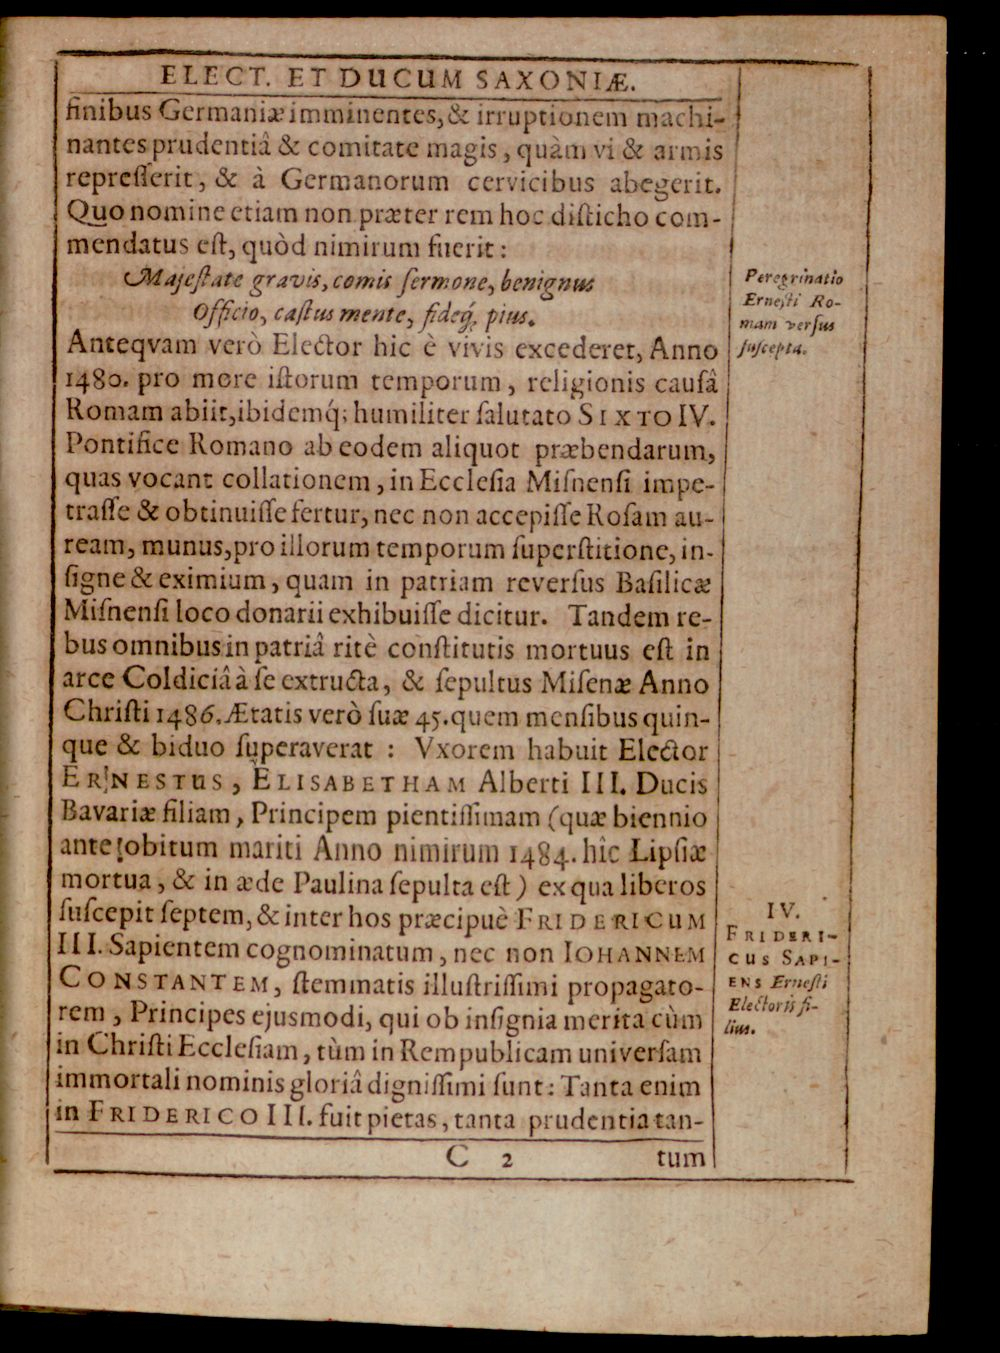 ELECT. ET DUCUM SAXONIÆ.
finibus Germaniæ imminentes, & irruptionem machi-
nantes prudentiâ & comitate magis, quàm vi & armis
represſerit, & à Germanorum cervicibus abegerit.
Quo nomine etiam non præter rem hoc diſticho com-
mendatus eſt, quòd nimirum fuerit:
Majeſtate gravis, comis ſermone, benignus
Officio, caſtus mente, fideq́; pius.
Anteqvam verò Elector hic è vivis excederet, Anno
1480. pro more iſtorum temporum, religionis cauſâ
Romam abiit, ibidemq́; humiliter ſalutato SIXTO IV.
Pontifice Romano ab eodem aliquot præbendarum,
quas vocant collationem, in Eccleſia Miſnenſi impe-
traſſe & obtinuiſſe fertur, nec non accepiſſe Roſam au-
ream, munus, pro illorum temporum ſuperſtitione, in-
ſigne & eximium, quam in patriam reverſus Baſilicæ
Miſnenſi loco donarii exhibuiſſe dicitur. Tandem re-
bus omnibus in patriâ ritè conſtitutis mortuus eſt in
arce Coldiciâ à ſe extructa, & ſepultus Miſenæ Anno
Chriſti 1486. Ætatis verò ſuæ 45. quem menſibus quin-
que & biduo ſuperaverat : Vxorem habuit Elector
ERNESTUS, ELISABETHAM Alberti III. Ducis
Bavariæ filiam, Principem pientiſſimam (quæ biennio
ante obitum mariti Anno nimirum 1484. hîc Lipſiæ
mortua, & in æde Paulina ſepulta eſt) ex qua liberos
ſuſcepit ſeptem, & inter hos præcipuè FRIDERICUM
III. Sapientem cognominatum, nec non IOHANNEM
CONSTANTEM, ſtemmatis illuſtriſſimi propagato-
rem, Principes ejusmodi, qui ob inſignia merita cùm
in Chriſti Eccleſiam, tùm in Rempublicam univerſam
immortali nominis gloriâ digniſſimi ſunt: Tanta enim
in FRIDERICO III. fuit pietas, tanta prudentia tan-
C 2 tum
Peregrinatio
Erneſti Ro-
mam verſus
ſuſcepta.
IV.
FRIDERI-
CUS SAPI-
ENS Erneſti
Electoris fi-
lius.